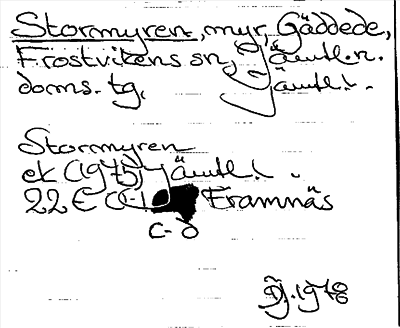 Stormyren, myr, Gäddede,
Frostvikens sn, Jämtl. n.
doms. tg, Jämtl. l.
Stormyren
ek (1975) Jämtl. l.
22 E Framnäs
c-d
1978